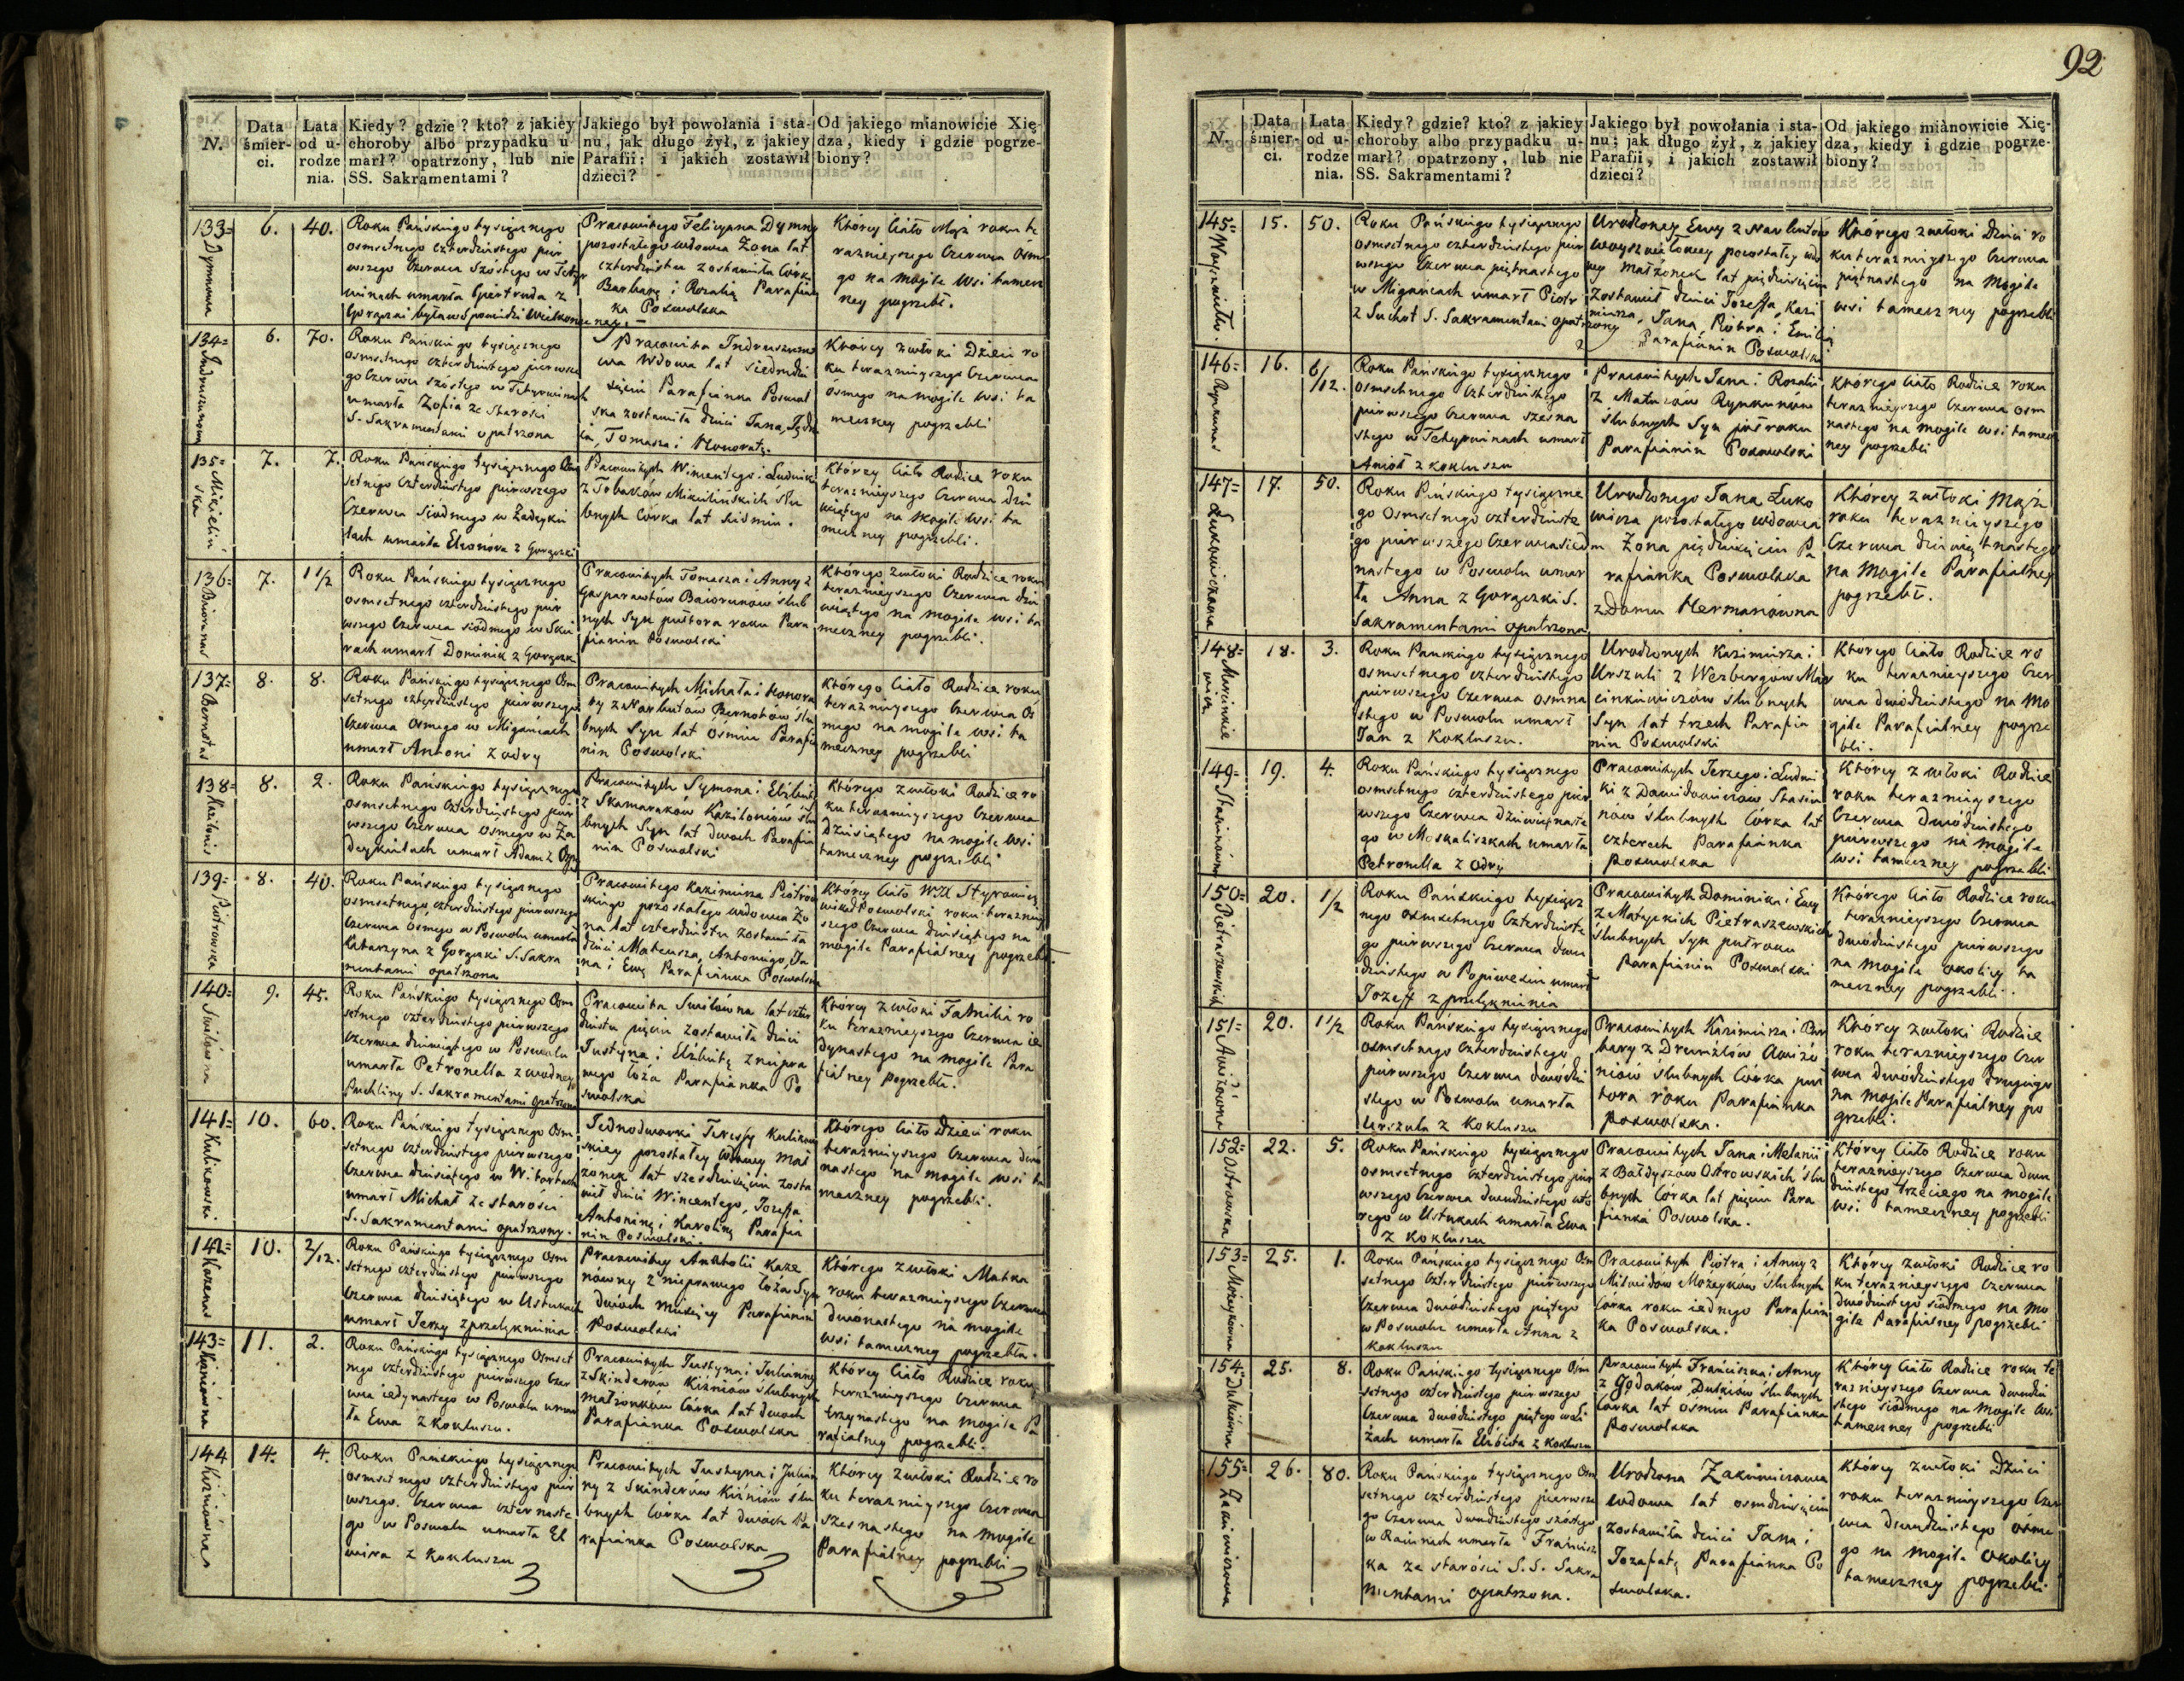 92
N.
Data śmier- ci.
Lata od u- rodze nia.
Kiedy? gdzie? kto? z jakiey
choroby albo przypadku u-
marł? opatrzony, lub nie
SS. Sakramentami?
Jakiego był powołania i sta-
nu, jak długo żył, z jakiey
Parafii; i jakich zostawił
dzieci?
Od jakiego mianowicie Xię-
dza, kiedy i gdzie pogrze-
biony?
133=
6.
40.
Roku Pańskiego tysiącznego
osmsetnego czterdziestego pier
wszego Czerwca szóstego w
umarła z
Pracowitego Felicyana
pozostałego wdowca Żona lat
czterdziestu zostawiła Córki
Barbarę i Rozalią Parafian
ka Poswolska
Którey Ciało Mąż roku te
razniejszego Czerwca Osm
go na mogile Wsi tamecz
ney pogrzebł.
134=
6.
70.
Roku Pańskiego tysiącznego
osmsetnego czterdziestego pierwsze
go Czerwca szóstego w
umarła Zofia ze starości
S. Sakramentami opatrzona
Pracowita
wa Wdowa lat siedmdzie
sięciu Parafianka Poswol
ska zostawiła dzieci Jana,
Tomasza i Honoratę.
Którey zwłoki Dzieci ro
ku terazniejszego Czerwca
ósmego na mogile wsi ta
meczney pogrzebli
135=
7.
7.
Roku Pańskiego tysiącznego Osm
setnego czterdziestego pierwszego
Czerwca siódmego w
umarła Eleonora z Gorączki
Pracowitych Wincentego i Ludwiki
z
bnych Córka lat siedmiu.
Którey Ciało Rodzice roku
terazniejszego Czerwca dzie
wiątego na Mogile Wsi ta
meczney pogrzebli.
136=
7.
1 1/2
Roku Pańskiego tysiącznego
osmsetnego czterdziestego pier
wszego Czerwca siódmego w
umarł Dominik z Gorączk
Pracowitych Tomasza i Anny z
Baiorunów ślub
nych Syn pułtora roku Para
fianin Poswolski
Którego zwłoki Rodzice roku
terazniejszego Czerwca dzie
wiątego na Mogile wsi ta
meczney pogrzebli.
137=
Bernotas
8.
8.
Roku Pańskiego tysiącznego Osm
setnego czterdziestego pierwszego
Czerwca Osmego w Migańcach
umarł Antoni z odry
Pracowitych Michała i Honora
ty z Narbutów Bernotów ślu
bnych Syn lat ośmiu Parafia
nin Poswolski
Którego Ciało Rodzice roku
terazniejszego Czerwca Os
mego na mogile wsi ta
meczney pogrzebli
138=
8.
2.
Roku Pańskiego tysiącznego
osmsetnego czterdziestego pier
wszego Czerwca osmego w Za
umarł Adam z
Pracowitych Symona i Elżbiet
z ślu
bnych Syn lat dwoch Parafia
nin Poswolski
Którego zwłoki Rodzice ro
ku terazniejszego Czerwca
dziesiątego na mogile wsi
tameczney pogrzebli
139=
Piotrowska
8.
40.
Roku Pańskiego tysiącznego
osmsetnego czterdziestego pierwszego
Czerwca ósmego w Poswolu umarła
Katarzyna z Gorączki S. Sakra
mentami opatrzona
Pracowitego Kazimierza Piotrow
skiego pozostałego wdowca Żo
na lat czterdziestu zostawiła
dzieci Mateusza, Antoniego, Ja
na i Ewę Parafianka Poswolska
Którey Ciało
Poswolski roku teraznie
szego Czerwca dziesiątego na
mogile Parafialney pogrzebł.
140=
9.
45.
Roku Pańskiego tysiącznego Osm
setnego czterdziestego pierwszego
Czerwca dziewiątego w Poswolu
umarła Petronella z wodney
Puchliny S. Sakramentami opatrzona
Pracowita lat czter
dziestu pięciu zostawiła dzieci
Justyna i Elżbietę z niepra
wego łoża Parafianka Po
swolska
Którey zwłoki Familia ro
ku terazniejszego Czerwca ie
dynastego na mogile Para
fialney pogrzebła.
141=
Kulikowski
10.
60.
Roku Pańskiego tysiącznego Osm
setnego czterdziestego pierwszego
Czerwca dziesiątego w
umarł Michał ze starości
S. Sakramentami opatrzony.
Jednodworki Teressy Kulikow
skiey pozostałey wdowy mał
żonek lat sześćdziesięciu zosta
wił dzieci Wincentego, Jozefa
Antoninę i Karolinę Parafia
nin Poswolski.
Którego Ciało Dzieci roku
terazniejszego Czerwca dwu
nastego na mogile wsi ta
meczney pogrzebli.
142=
10.
2/12.
Roku Pańskiego tysiącznego Osm
setnego czterdziestego pierwszego
Czerwca dziesiątego w Ustukach
umarł Jerzy z przelęknienia
Pracowitey Anatolii
z nieprawego łoża Syn
dwóch miesięcy Parafianin
Poswolski
Którego zwłoki Matka
roku terazniejszego Czerwca
dwónastego na mogile
wsi tameczney pogrzebła.
143=
11.
2.
Roku Pańskiego tysiącznego Osmset
nego czterdziestego pierwszego Czer
wca iedynastego w Poswolu umar
ła Ewa z Kokluszu.
Pracowitych Justyna i Julianny
z Skinderów Kiźniów ślubnych
małżonków Córka lat dwoch
Parafianka Poswolska
Którey Ciało Rodzice roku
terazniejszego Czerwca
trzynastego na Mogile Pa
rafialney pogrzebli.
144
Kiźniówna
14.
4.
Roku Pańskiego tysiącznego
osmsetnego czterdziestego pier
wszego. Czerwca czternaste
go w Poswolu umarła El
wira z Kokluszu
Pracowitych Justyna i Julian
ny z Skinderów Kiźniów ślu
bnych Córka lat dwóch Pa
rafianka Poswolska
Którey zwłoki Rodzice ro
ku terazniejszego Czerwca
szesnastego na mogile
Parafialney pogrzebli
N.
Data śmier- ci.
Lata od u- rodze nia.
Kiedy? gdzie? kto? z jakiey
choroby albo przypadku u-
marł? opatrzony, lub nie
SS. Sakramentami?
Jakiego był powołania i sta-
nu; jak długo żył, z jakiey
Parafii, i jakich zostawił
dzieci?
Od jakiego mianowicie Xię-
dza, kiedy i gdzie pogrze-
biony?
145=
15.
50.
Roku Pańskiego tysiącznego
osmsetnego czterdziestego pier
wszego Czerwca piętnastego
w Migańcach umarł Piotr
z Suchot S. Sakramentami opatrzony
Urodzoney Ewy z Narbutów
pozostałey wdo
wy Małżonek lat pięćdziesięciu
Zostawił dzieci Jozeffa, Kazi
mierza, Jana, Piotra i Emilią
Parafianin Poswolski
Którego zwłoki Dzieci ro
ku terazniejszego Czerwca
piętnastego na Mogile
wsi tameczney pogrzebli
146=
16.
6/12.
Roku Pańskiego tysiącznego
osmsetnego czterdziestego
pierwszego Czerwca szesna
stego w umarł
Anioł z kokluszu
Pracowitych Jana i Rozalii
z
ślubnych Syn pół roku
Parafianin Poswolski
Którego Ciało Rodzice roku
terazniejszego Czerwca osm
nastego na mogile wsi tamecz
ney pogrzebli
147=
17.
50.
Roku Pańskiego tysiączne
go Osmsetnego czterdzieste
go pierwszego Czerwca siedm
nastego w Poswolu umar
ła Anna z Gorączki S.
Sakramentami opatrzona
Urodzonego Jana Łuko
wicza pozostałego wdowca
Żona pięćdziesięciu Pa
rafianka Poswolska
z Domu Hermanówna
Którey zwłoki Mąż
roku terazniejszego
Czerwca dziewiętnastego
na Mogile Parafialney
pogrzebł.
148=
18.
3.
Roku Pańskiego tysiącznego
osmsetnego czterdziestego
pierwszego Czerwca osmna
stego w Poswolu umarł
Jan z Kokluszu.
Urodzonych Kazimierza i
Urszuli z Mar
cinkiewiczów ślubnych
Syn lat trzech Parafia
nin Poswolski
Którego Ciało Rodzice ro
ku terazniejszego Czer
wca dwódziestego na Mo
gile Parafialney pogrze
bli.
149=
19.
4.
Roku Pańskiego tysiącznego
osmsetnego czterdziestego pier
wszego Czerwca dziewiętnaste
go w Moskaliszkach umarła
Petronella z Odry
Pracowitych Jerzego i Ludwi
ki z Dawidowiczów Stasiu
nów ślubnych Córka lat
czterech Parafianka
Poswolska
Którey zwłoki Rodzice
roku terazniejszego
Czerwca dwódziestego
pierwszego na mogile
wsi tameczney pogrzebli
150=
20.
1/2
Roku Pańskiego tysiącz
nego osmsetnego czterdzieste
go pierwszego Czerwca dwu
dziestego w umarł
Jozeff z przelęknienia
Pracowitych Dominika i Ewy
z Matyckich Pietraszewskich
ślubnych Syn pułroku
Parafianin Poswolski
Którego Ciało Rodzice roku
terazniejszego Czerwca
dwódziestego pierwszego
na mogile okolicy ta
meczney pogrzebli.
151=
20.
1 1/2
Roku Pańskiego tysiącznego
osmsetnego czterdziestego
pierwszego Czerwca dwódzie
stego w Poswolu umarła
Urszula z Kokluszu
Pracowitych Kazimierza i Bar
bary z
ślubnych Córka puł
tora roku Parafianka
Poswolska.
Którey zwłoki Rodzice
roku terazniejszego Czer
wca dwódziestego drugiego
na mogile Parafialney po
grzebli.
152=
Ostrowska
22.
5.
Roku Pańskiego tysiącznego
osmsetnego czterdziestego pier
wszego Czerwca dwudziestego wtó
rego w Ustukach umarła Ewa
z Kokluszu
Pracowitych Jana i Melanii
z Bałdyszów Ostrowskich ślu
bnych Córka lat pięciu Para
fianka Poswolska.
Którey Ciało Rodzice roku
terazniejszego Czerwca dwu
dziestego trzeciego na mogile
wsi tameczney pogrzebli
153=
25.
1.
Roku Pańskiego tysiącznego Osm
setnego czterdziestego pierwszego
Czerwca dwódziestego piątego
w Poswolu umarła Anna z
Kokluszu
Pracowitych Piotra i Anny z
ślubnych
Córka roku iednego Parafian
ka Poswolska.
Którey zwłoki Rodzice ro
ku terazniejszego Czerwca
dwódziestego siódmego na mo
gile Parafialney pogrzebli
154=
25.
8.
Roku Pańskiego tysiącznego Osm
setnego czterdziestego pierwszego
Czerwca dwódziestego piątego w
umarła Elżbieta z Kokluszu
Pracowitych Franciszka i Anny
z ślubnych
Córka lat osmiu Parafianka
Poswolska
Którey Ciało Rodzice roku te
razniejszego Czerwca dwudzie
stego siódmego na Mogile wsi
tameczney pogrzebli
155=
26.
80.
Roku Pańskiego tysiącznego Osm
setnego czterdziestego pierwsze
go Czerwca dwudziestego szóstego
w umarła Francisz
ka ze starości S.S. Sakra
mentami opatrzona.
Urodzona
wdowa lat osmdziesięciu
zostawiła dzieci Jana i
Jozafatę Parafianka Po
swolska.
Którey zwłoki Dzieci
roku terazniejszego Czer
wca dwudziestego ósme
go na mogile okolicy
tameczney pogrzebli